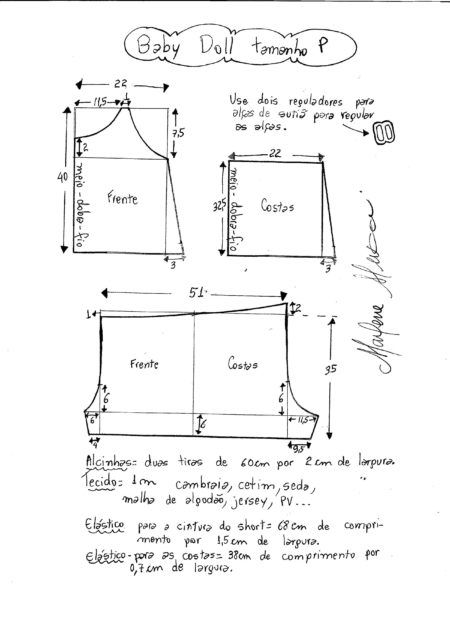 Baby Doll tamanho P
22
11,5
1
7,5
2
40
meio-dobra-fio
Frente
3
Use dois reguladores para
alças de sutiã para regular
as alças.
22
32,5
meio-dobra-fio
Costas
3
51
1
2
Frente
Costas
35
6
6
6
6
11,5
4
9,5
Marlene Mukai
Alcinhas= duas tiras de 60cm por 2cm de largura.
Tecido= 1m cambraia, cetim, seda,
malha de algodão, jersey, PV...
Elástico para a cintura do short= 68cm de compri-
mento por 1,5cm de largura.
Elástico-para as costas= 38cm de comprimento por
0,7cm de largura.